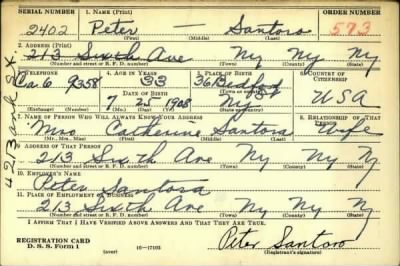 SERIAL NUMBER 1. NAME (Print) ORDER NUMBER
2402 Peter — Santoro 573
(First) (Middle) (Last)
2. ADDRESS (Print)
213 Sixth Ave Ny Ny Ny
(Number and street or R. F. D. number) (Town) (County) (State)
3. TELEPHONE 4. AGE IN YEARS 5. PLACE OF BIRTH 6. COUNTRY OF CITIZENSHIP
Ca 6 9358 33 36 Bedford St
DATE OF BIRTH (Town or county)
7 25 1908 Ny USA
(Exchange) (Number) (Mo.) (Day) (Yr.) (State or country)
7. NAME OF PERSON WHO WILL ALWAYS KNOW YOUR ADDRESS 8. RELATIONSHIP OF THAT PERSON
Mrs Catherine Santora Wife
(Mr., Mrs., Miss) (First) (Middle) (Last)
9. ADDRESS OF THAT PERSON
213 Sixth Ave Ny Ny Ny
(Number and street or R. F. D. number) (Town) (County) (State)
10. EMPLOYER'S NAME
Peter Santora
11. PLACE OF EMPLOYMENT OR BUSINESS
213 Sixth Ave Ny Ny Ny
(Number and street or R. F. D. number) (Town) (County) (State)
I AFFIRM THAT I HAVE VERIFIED ABOVE ANSWERS AND THAT THEY ARE TRUE.
REGISTRATION CARD
D. S. S. Form 1 (over) 16—17105 Peter Santoro
(Registrant's signature)